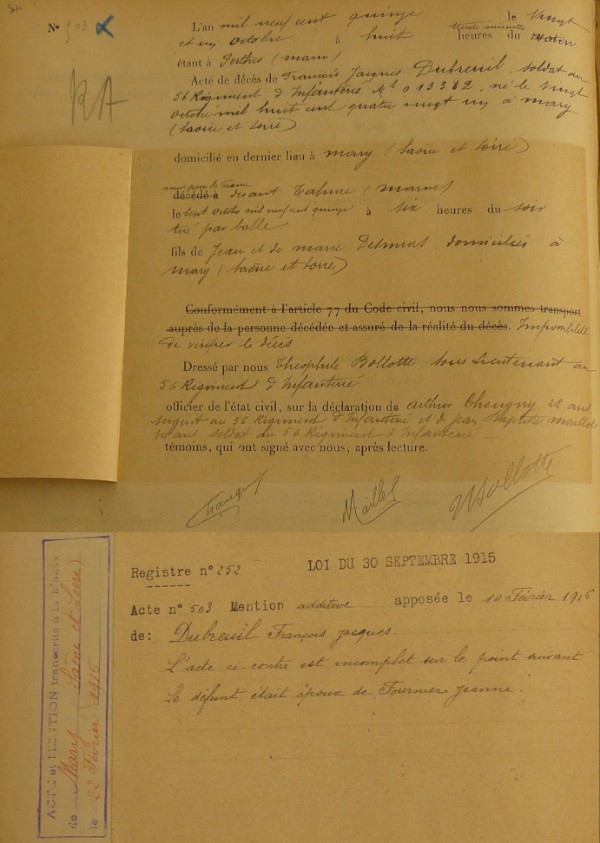 L'an mil neuf cent quinze le Vingt
et un Octobre à huit heures trente minutes du matin
étant à Perthes (Marne)
N° 503
Acte de décès de François Jacques Dubreuil, soldat au
56 Régiment d'Infanterie Mle 013382, né le vingt
octobre mil huit cent quatre vingt un à Mary
(Saône et Loire)
RA
domicilié en dernier lieu à Mary (Saône et Loire)
mort pour la France
décédé à devant Tahure (Marne)
le sept octobre mil neuf cent quinze à six heures du soir
tué par balle
fils de Jean et de Marie Delmas, domiciliés à
Mary (Saône et Loire)
Conformément à l'article 77 du Code civil, nous nous sommes transport
auprès de la personne décédée et assuré de la réalité du décès. Impossibilité
de vérifier le décès
Dressé par nous Théophile Bollotte sous Lieutenant au
56 Régiment d'Infanterie
officier de l'état civil, sur la déclaration de Arthur
sergent au 56 Régiment d'Infanterie et de Jean Baptiste Maillet
soldat du 56 Régiment d'Infanterie
témoins, qui ont signé avec nous, après lecture.
Maillet
Bollotte
Registre n° 252 LOI DU 30 SEPTEMBRE 1915
Acte n° 503 Mention additive apposée le 10 Février 1916
de: Dubreuil François Jacques.
L'acte ci-contre est incomplet sur le point suivant
Le défunt était époux de Fournier Jeanne.
ACTE et MENTION transcrits à la Mairie
de Mary Saône et Loire
le 22 Février 1916